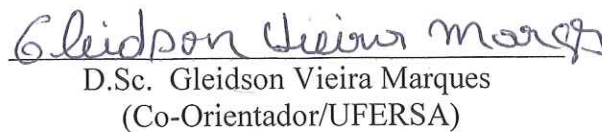 Gleidson Vieira Marques
D.Sc. Gleidson Vieira Marques
(Co-Orientador/UFERSA)